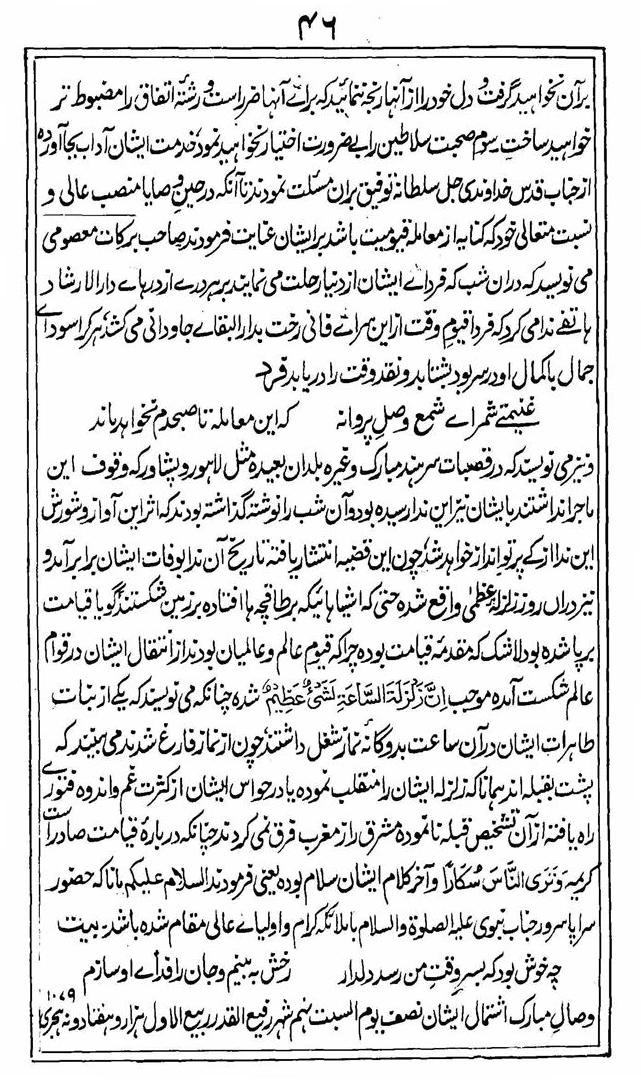 ۴۶
برآن نخواهید گرفت و دل خود را از آنها رنجه ننمائید که براے آنها ضرر است و رشتهٔ اتفاق را مضبوط تر
خواهید ساخت۔ سوم صحبت سلاطین را بے ضرورت اختیار نخواهید نمود خدمت ایشان آداب بجا آورده
از جناب قدس خداوندی جل سلطانه توفیق بران مسئلت نمودند تا آنکه در حین وصایا منصب عالی و
نسبت متعالی خود که کنایه از معامله قیومیت باشد برایشان عنایت فرمودند صاحب برکات معصومی
می نویسد که دران شب که فرداے ایشان از دنیا رحلت می نمایند بر هر درے از درهاے دارالارشاد
هاتفے ندا می کرد که فردا قیوم وقت ازین سراے فانی رخت بدار البقاے جاودانی می کشد هر کرا سوداے
جمال باکمال او در سر بود بشتابد و نقد وقت را دریابد فرد
غنیمتے شمر اے شمع وصل پروانه که این معامله تا صبحدم نخواهد ماند
ونیز می نویسد که در قصبات سرهند مبارک و غیره بلدان بعیده مثل لاهور و پشاور که وقوف این
ماجرا نداشتند بایشان نیز این ندا رسیده بود و آن شب را نوشته گذاشته بودند که اثر این آواز و شورش
این ندا از که پرتو انداز خواهد شد چون این قضیه انتشار یافته تاریخ آن ندا بوفات ایشان برابر آمد و
نیز دران روز زلزلهٔ عظمیٰ واقع شده حتی که اشیا هائیکه بر طاقچه ها افتاده بر زمین شکستند گویا قیامت
برپا شده بود لاشک که مقدمهٔ قیامت بوده چرا که قیوم عالم و عالمیان بودند از انتقال ایشان در قوام
عالم شکست آمده موجب اِنَّ زَلْزَلَةَ السَّاعَةِ لَشَیْءٌ عَظِیْمٌ شده چنانکه می نویسد که یکے از بنات
طاهرات ایشان در آن ساعت بدوگانهٔ نماز شغل داشتند چون از نماز فارغ شدند می بینند که
پشت بقبله اند همانا که زلزله ایشان را منقلب نموده یا در حواس ایشان از کثرت غم و اندوه فتورے
راه یافته از آن تشخیص قبله نا نموده مشرق را از مغرب فرق نمی کردند چنانکه دربارهٔ قیامت صادر است
کریمه وَتَرَی النَّاسَ سُکَارٰا و آخر کلام ایشان سلام بوده یعنی فرمودند السلام علیکم مانا که حضور
سراپا سرور جناب نبوی علیه الصلوة والسلام با ملائکه کرام و اولیاے عالی مقام شده باشد۔ بیت
چه خوش بود که بسر وقت من رسد دلدار رخش به بینم و جان را فداے او سازم
وصال مبارک اشتمال ایشان نصف یوم السبت نهم شهر رفیع القدر ربیع الاول هزار و هفتاد و نه هجری ۱۰۷۹